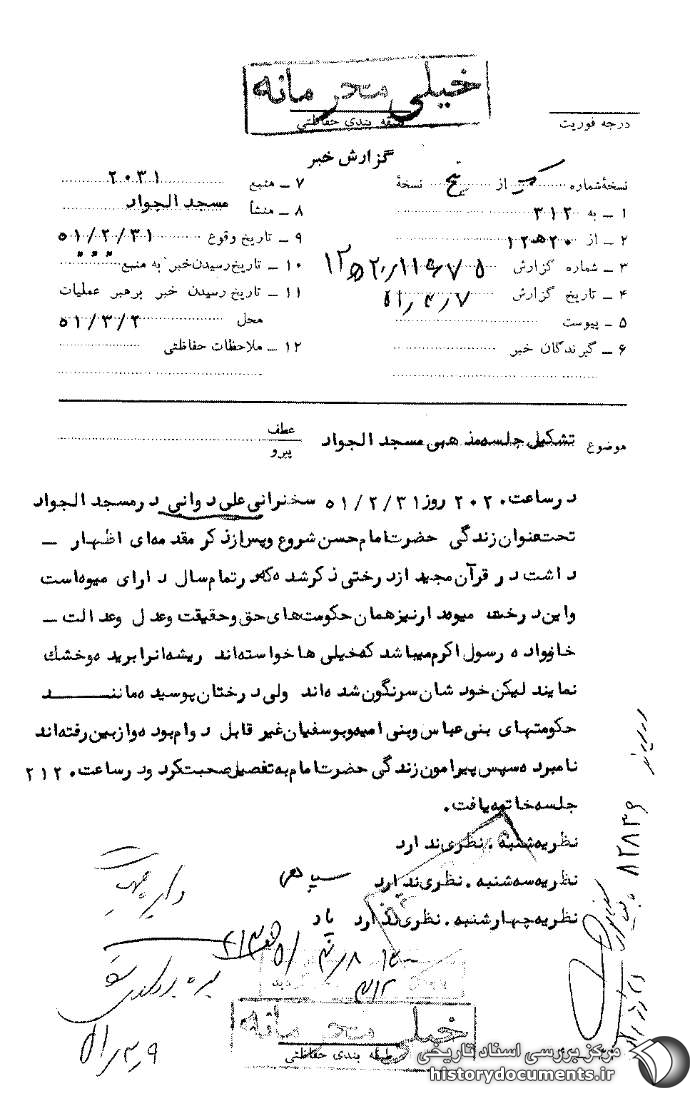 خیلی محرمانه
طبقه بندی حفاظتی
درجه فوریت
گزارش خبر
نسخهٔ شماره از نسخهٔ
۱ ـ به ۳۱۲
۲ ـ از ۲۰ ه ۱۲
۳ ـ شماره گزارش
۴ ـ تاریخ گزارش
۵ ـ پیوست
۶ ـ گیرندگان خبر
۷ ـ منبع ۲۰۳۱
۸ ـ منشأ مسجد الجواد
۹ ـ تاریخ وقوع ۵۱/۲/۳۱
۱۰ ـ تاریخ رسیدن خبر به منبع
۱۱ ـ تاریخ رسیدن خبر برهبر عملیات
محل ۵۱/۳/۲
۱۲ ـ ملاحظات حفاظتی
موضوع تشکیل جلسه مذهبی مسجد الجواد
عطف
پیرو
در ساعت ۲۰۲۰ روز ۵۱/۲/۳۱ سخنرانی علی دوانی در مسجد الجواد
تحت عنوان زندگی حضرت امام حسن شروع و پس از ذکر مقدمه ای اظهار ـ
داشت در قرآن مجید از درختی ذکر شده که در تمام سال دارای میوه است
و این درخت میوه دار نیز همان حکومت های حق و حقیقت و عدل و عدالت ـ
خانواده رسول اکرم میباشد که خیلی ها خواسته اند ریشه آنرا بریده و خشك
نمایند لیکن خودشان سرنگون شده اند ولی درختان پوسیده مانند
حکومتهای بنی عباس و بنی امیه و بوسفیان غیر قابل دوام بوده و از بین رفته اند
نامبرده سپس پیرامون زندگی حضرت امام به تفصیل صحبت کرد و در ساعت ۲۱۲۰
جلسه خاتمه یافت.
نظریه شنبه . نظری ندارد
نظریه سه شنبه . نظری ندارد
نظریه چهارشنبه . نظری ندارد
۳۱۲
۸۲۸۳۶
خیلی محرمانه
طبقه بندی حفاظتی
مرکز بررسی اسناد تاریخی
historydocuments.ir